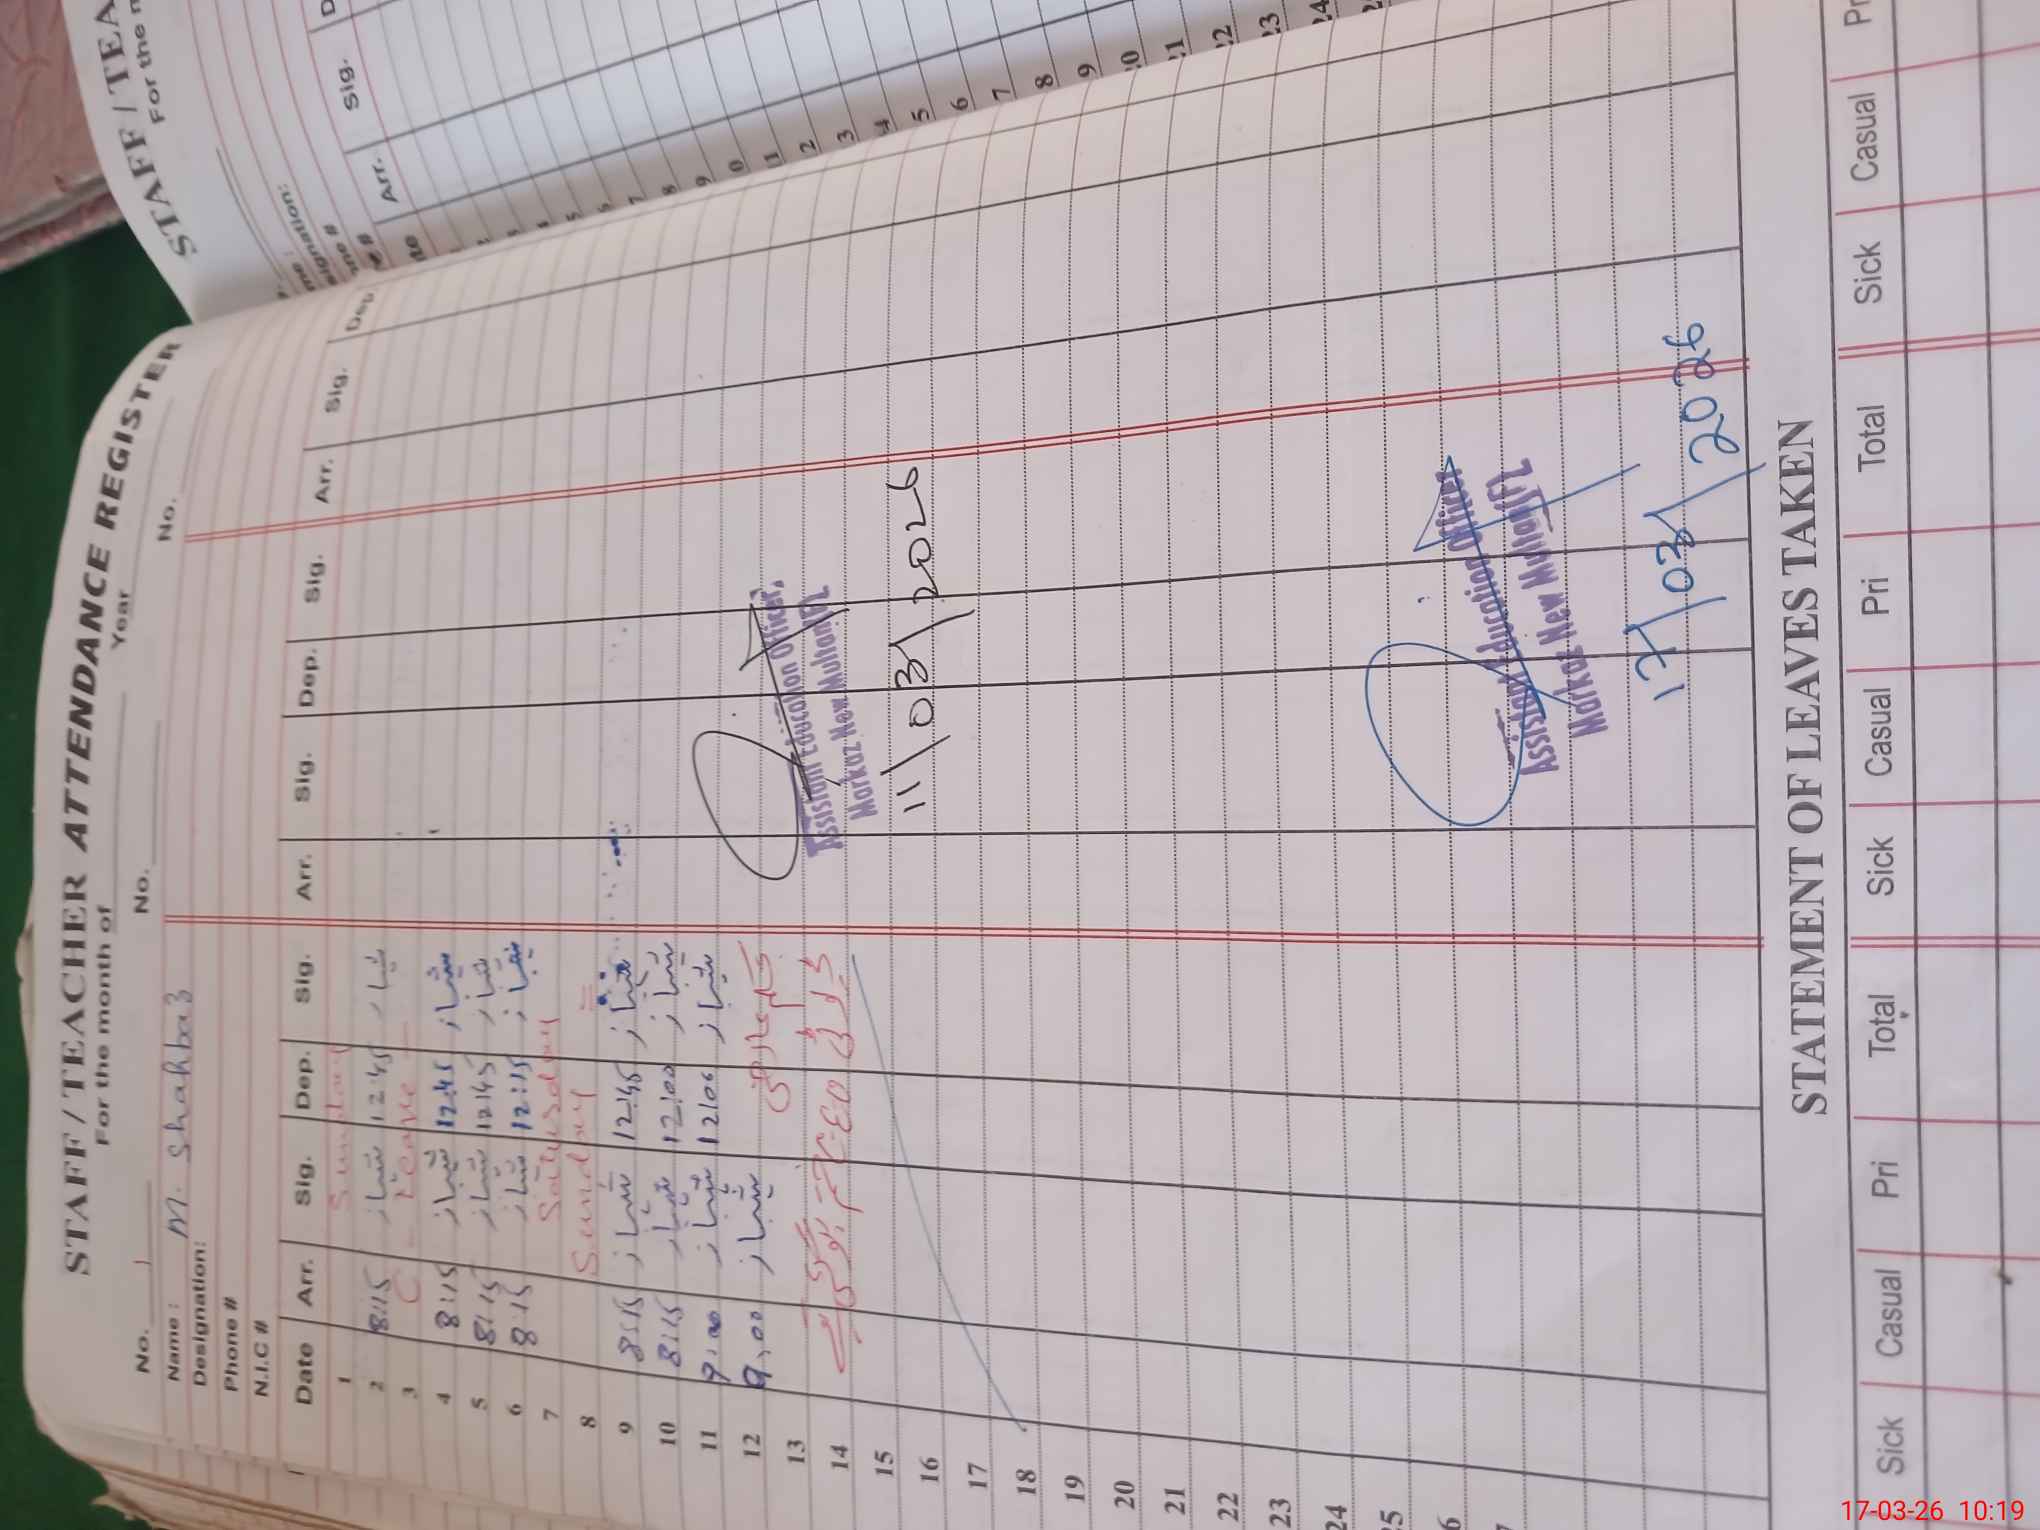 STAFF / TEACHER ATTENDANCE REGISTER
For the month of Year
No. 1 No. No.
Name : M. Shahbaz
Designation:
Phone #
N.I.C #
Date Arr. Sig. Dep. Sig. Arr. Sig. Dep. Sig. Arr. Sig. Dep.
1 Sunday
2 8:15 شہباز 12:45
3 C - Leave -
4 8:15 شہباز 12:45 شہباز
5 8:15 شہباز 12:45 شہباز
6 8:15 شہباز 12:15 شہباز
7 Saturday
8 Sunday =
9 8:15 شہباز 12:45 شہباز
10 8:15 شہباز 12:00 شہباز
11 9:00 شہباز 12:00 شہباز
12 9:00 شہباز
13
14
15
16
17
18
19
20
21
22
23
24
Assistant Education Officer,
Markaz New Multan
11/03/2026
Assistant Education Officer
Markaz New Multan
17/03/2026
STATEMENT OF LEAVES TAKEN
Sick Casual Pri Total Sick Casual Pri Total Sick Casual
STAFF / TEA
For the m
Arr. Sig.
17-03-26 10:19